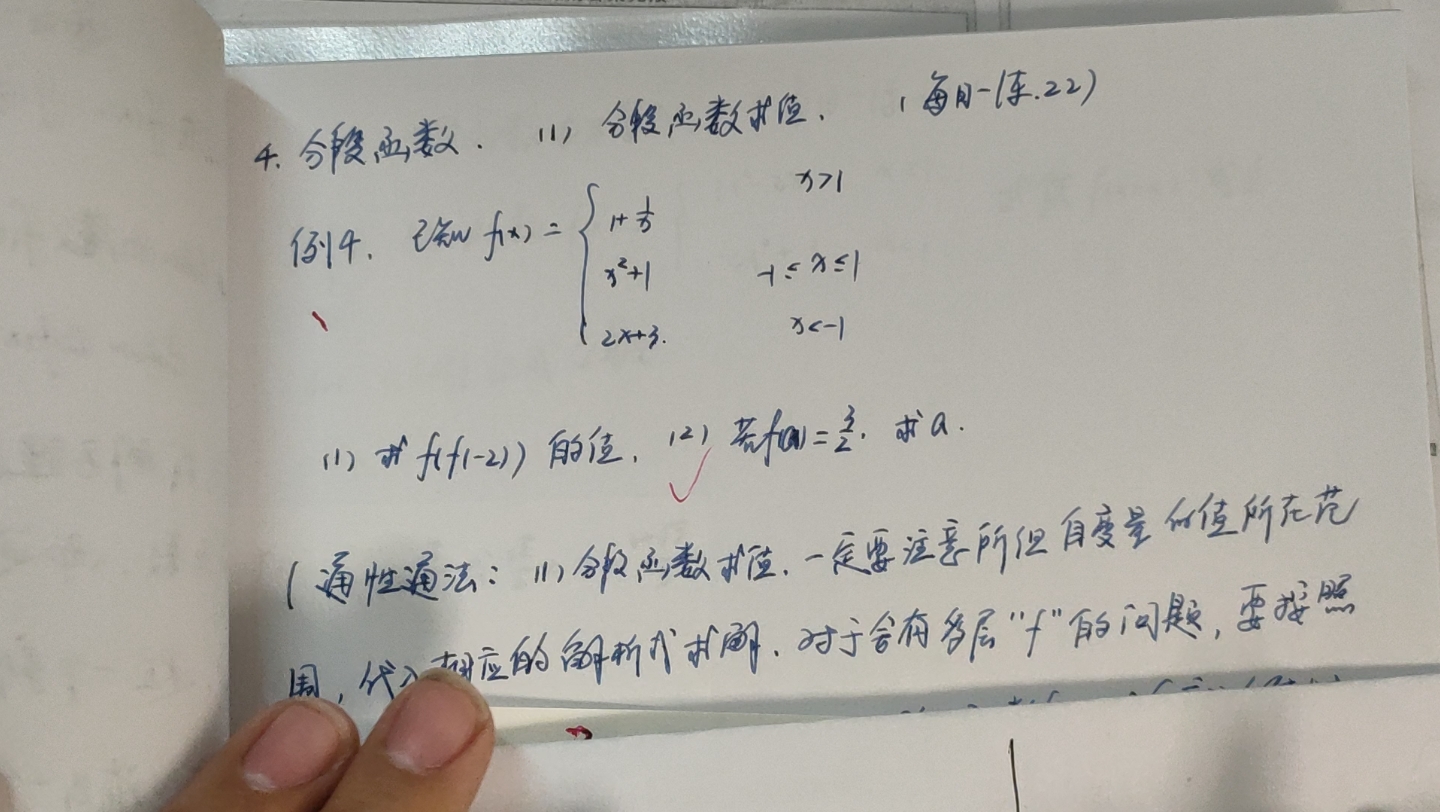 4. 分段函数. (1) 分段函数求值. (每日一练.22)
例4. 已知 f(x) = { 1+1/x x>1
x²+1 -1≤x≤1
2x+3. x<-1
(1) 求 f(f(-2)) 的值. (2) 若f(a)=3/2. 求a.
(通性通法: (1) 分段函数求值. 一定要注意所给自变量的值所在范
围, 代入相应的解析式求解. 对于含有多层"f"的问题, 要按照